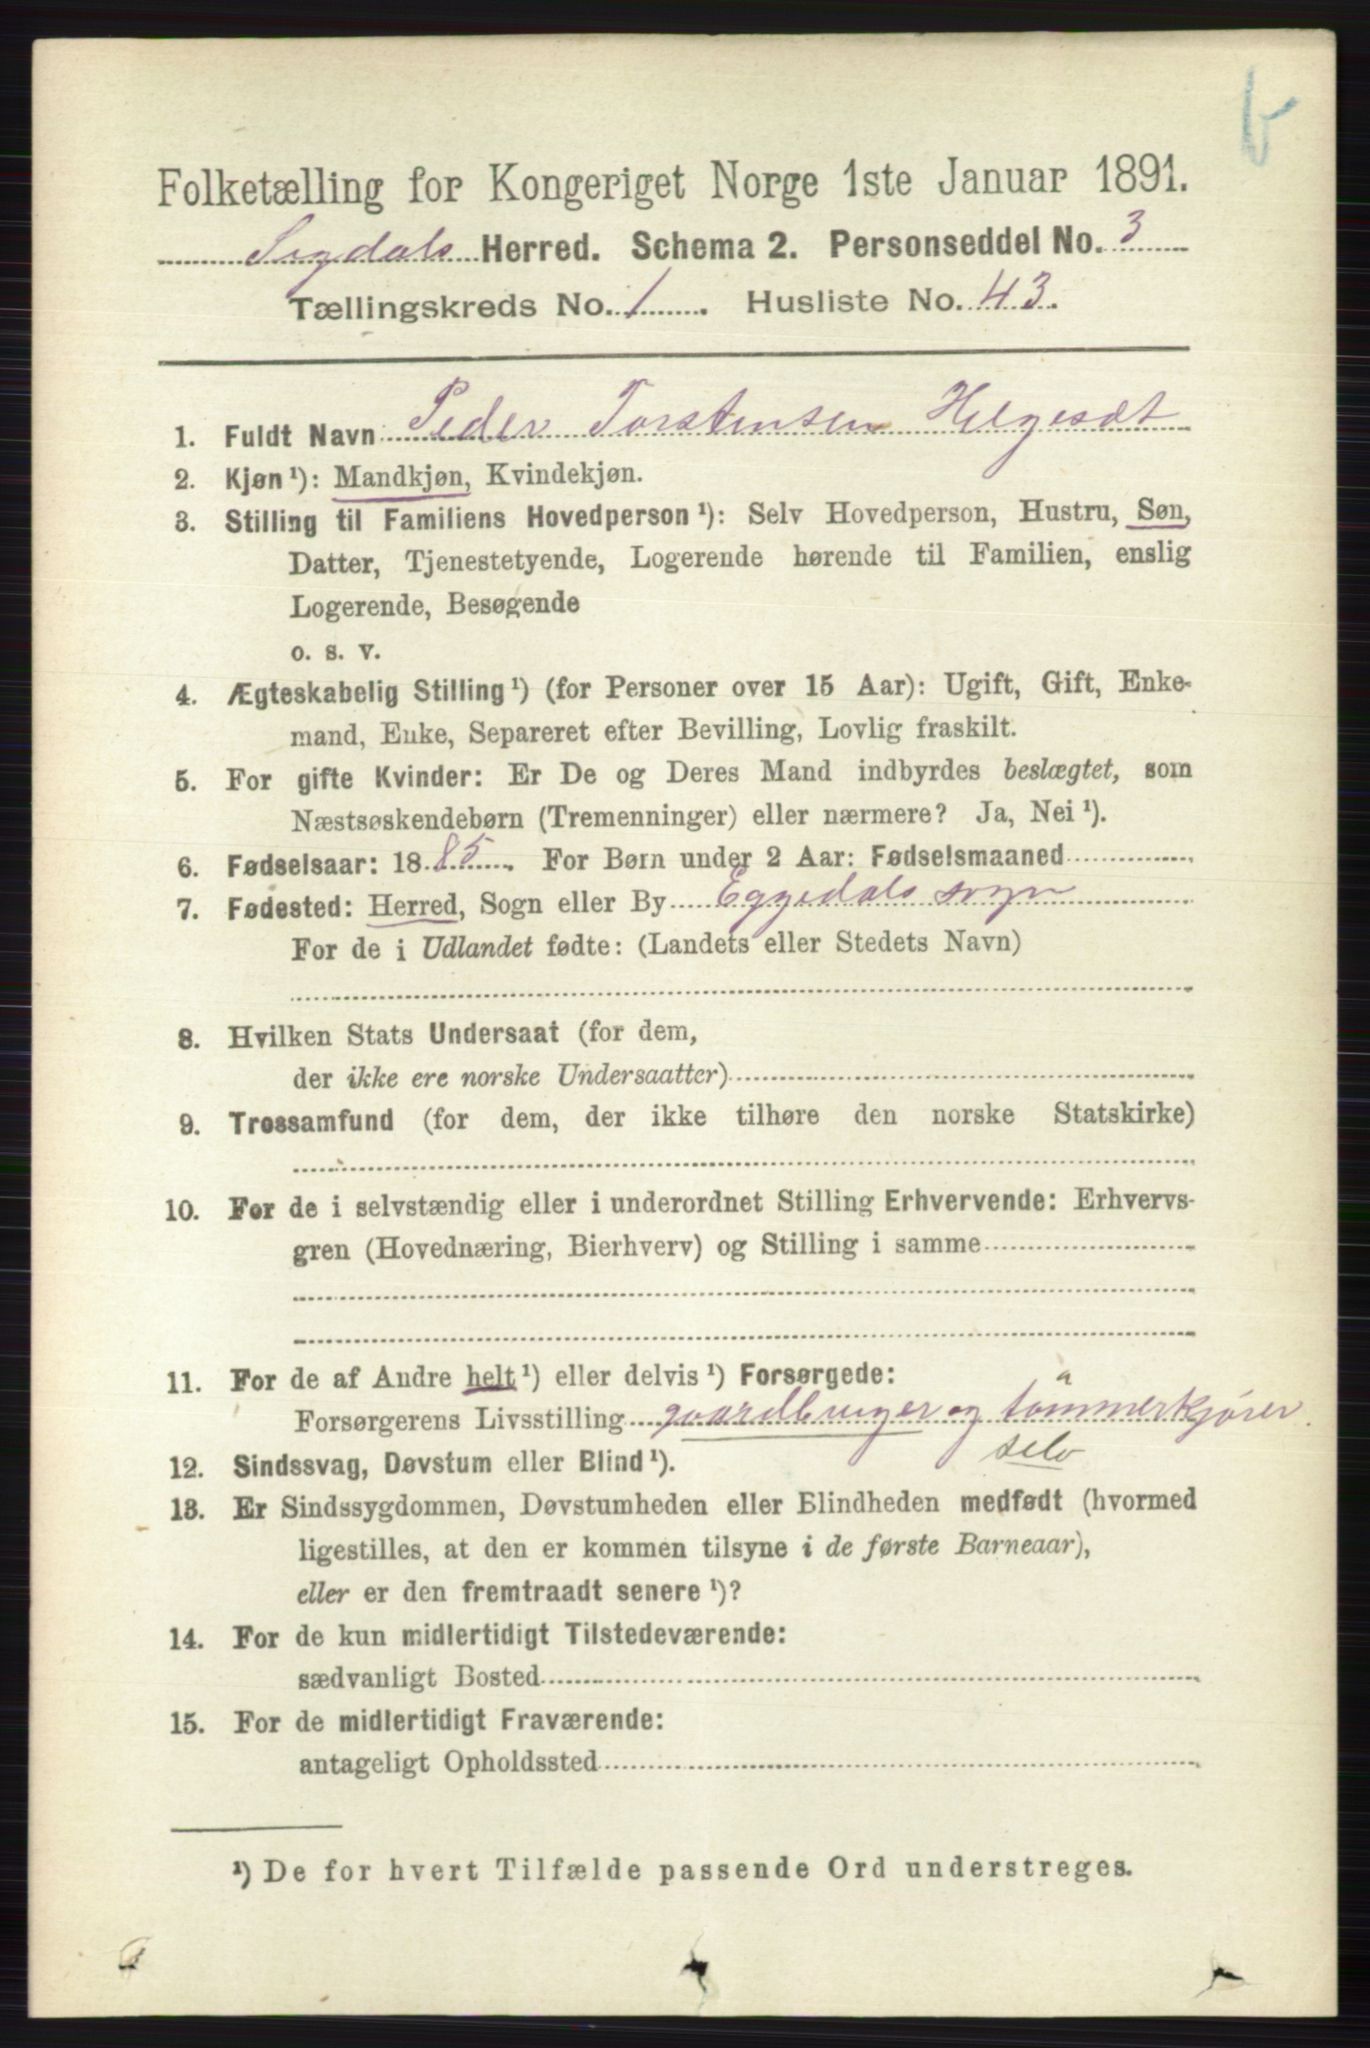 b
Folketælling for Kongeriget Norge 1ste Januar 1891.
Sigdals Herred. Schema 2. Personseddel No. 3
Tællingskreds No. 1. Husliste No. 43.
1. Fuldt Navn Peder Torstensen Helgesæt
2. Kjøn ¹): Mandkjøn, Kvindekjøn.
3. Stilling til Familiens Hovedperson ¹): Selv Hovedperson, Hustru, Søn,
Datter, Tjenestetyende, Logerende hørende til Familien, enslig
Logerende, Besøgende
o. s. v.
4. Ægteskabelig Stilling ¹) (for Personer over 15 Aar): Ugift, Gift, Enke-
mand, Enke, Separeret efter Bevilling, Lovlig fraskilt.
5. For gifte Kvinder: Er De og Deres Mand indbyrdes beslægtet, som
Næstsøskendebørn (Tremenninger) eller nærmere? Ja, Nei ¹).
6. Fødselsaar: 1885. For Børn under 2 Aar: Fødselsmaaned
7. Fødested: Herred, Sogn eller By Eggedals sogn
For de i Udlandet fødte: (Landets eller Stedets Navn)
8. Hvilken Stats Undersaat (for dem,
der ikke ere norske Undersaatter)
9. Trossamfund (for dem, der ikke tilhøre den norske Statskirke)
10. For de i selvstændig eller i underordnet Stilling Erhvervende: Erhvervs-
gren (Hovednæring, Bierhverv) og Stilling i samme
11. For de af Andre helt ¹) eller delvis ¹) Forsørgede:
Forsørgerens Livsstilling gaardbruger og tømmerkjører.
selv
12. Sindssvag, Døvstum eller Blind ¹).
13. Er Sindssygdommen, Døvstumheden eller Blindheden medfødt (hvormed
ligestilles, at den er kommen tilsyne i de første Barneaar),
eller er den fremtraadt senere ¹)?
14. For de kun midlertidigt Tilstedeværende:
sædvanligt Bosted
15. For de midlertidigt Fraværende:
antageligt Opholdssted
¹) De for hvert Tilfælde passende Ord understreges.